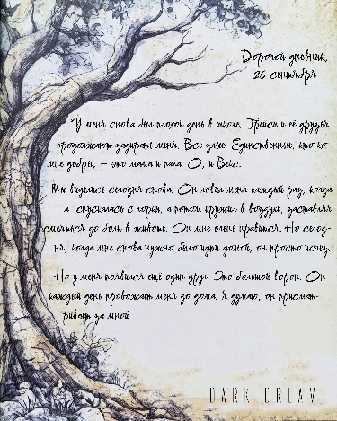 Дорогой дневник,
26 сентября
"У меня снова был плохой день в школе. Присти и её друзья
продолжают задирать меня. Все злые. Единственные, кто ко
мне добры, — это мама и папа. О, и Векс.
Мы виделись сегодня снова. Он ловил меня каждый раз, когда
я спускалась с горки, а потом кружил в воздухе, заставляя
смеяться до боли в животе. Он мне очень нравится. Но сегод-
ня, когда мне снова нужно было идти домой, он просто исчез.
Но у меня появился ещё один друг. Это большой ворон. Он
каждый день провожает меня до дома. Я думаю, он присмат-
ривает за мной
DARK DREAM